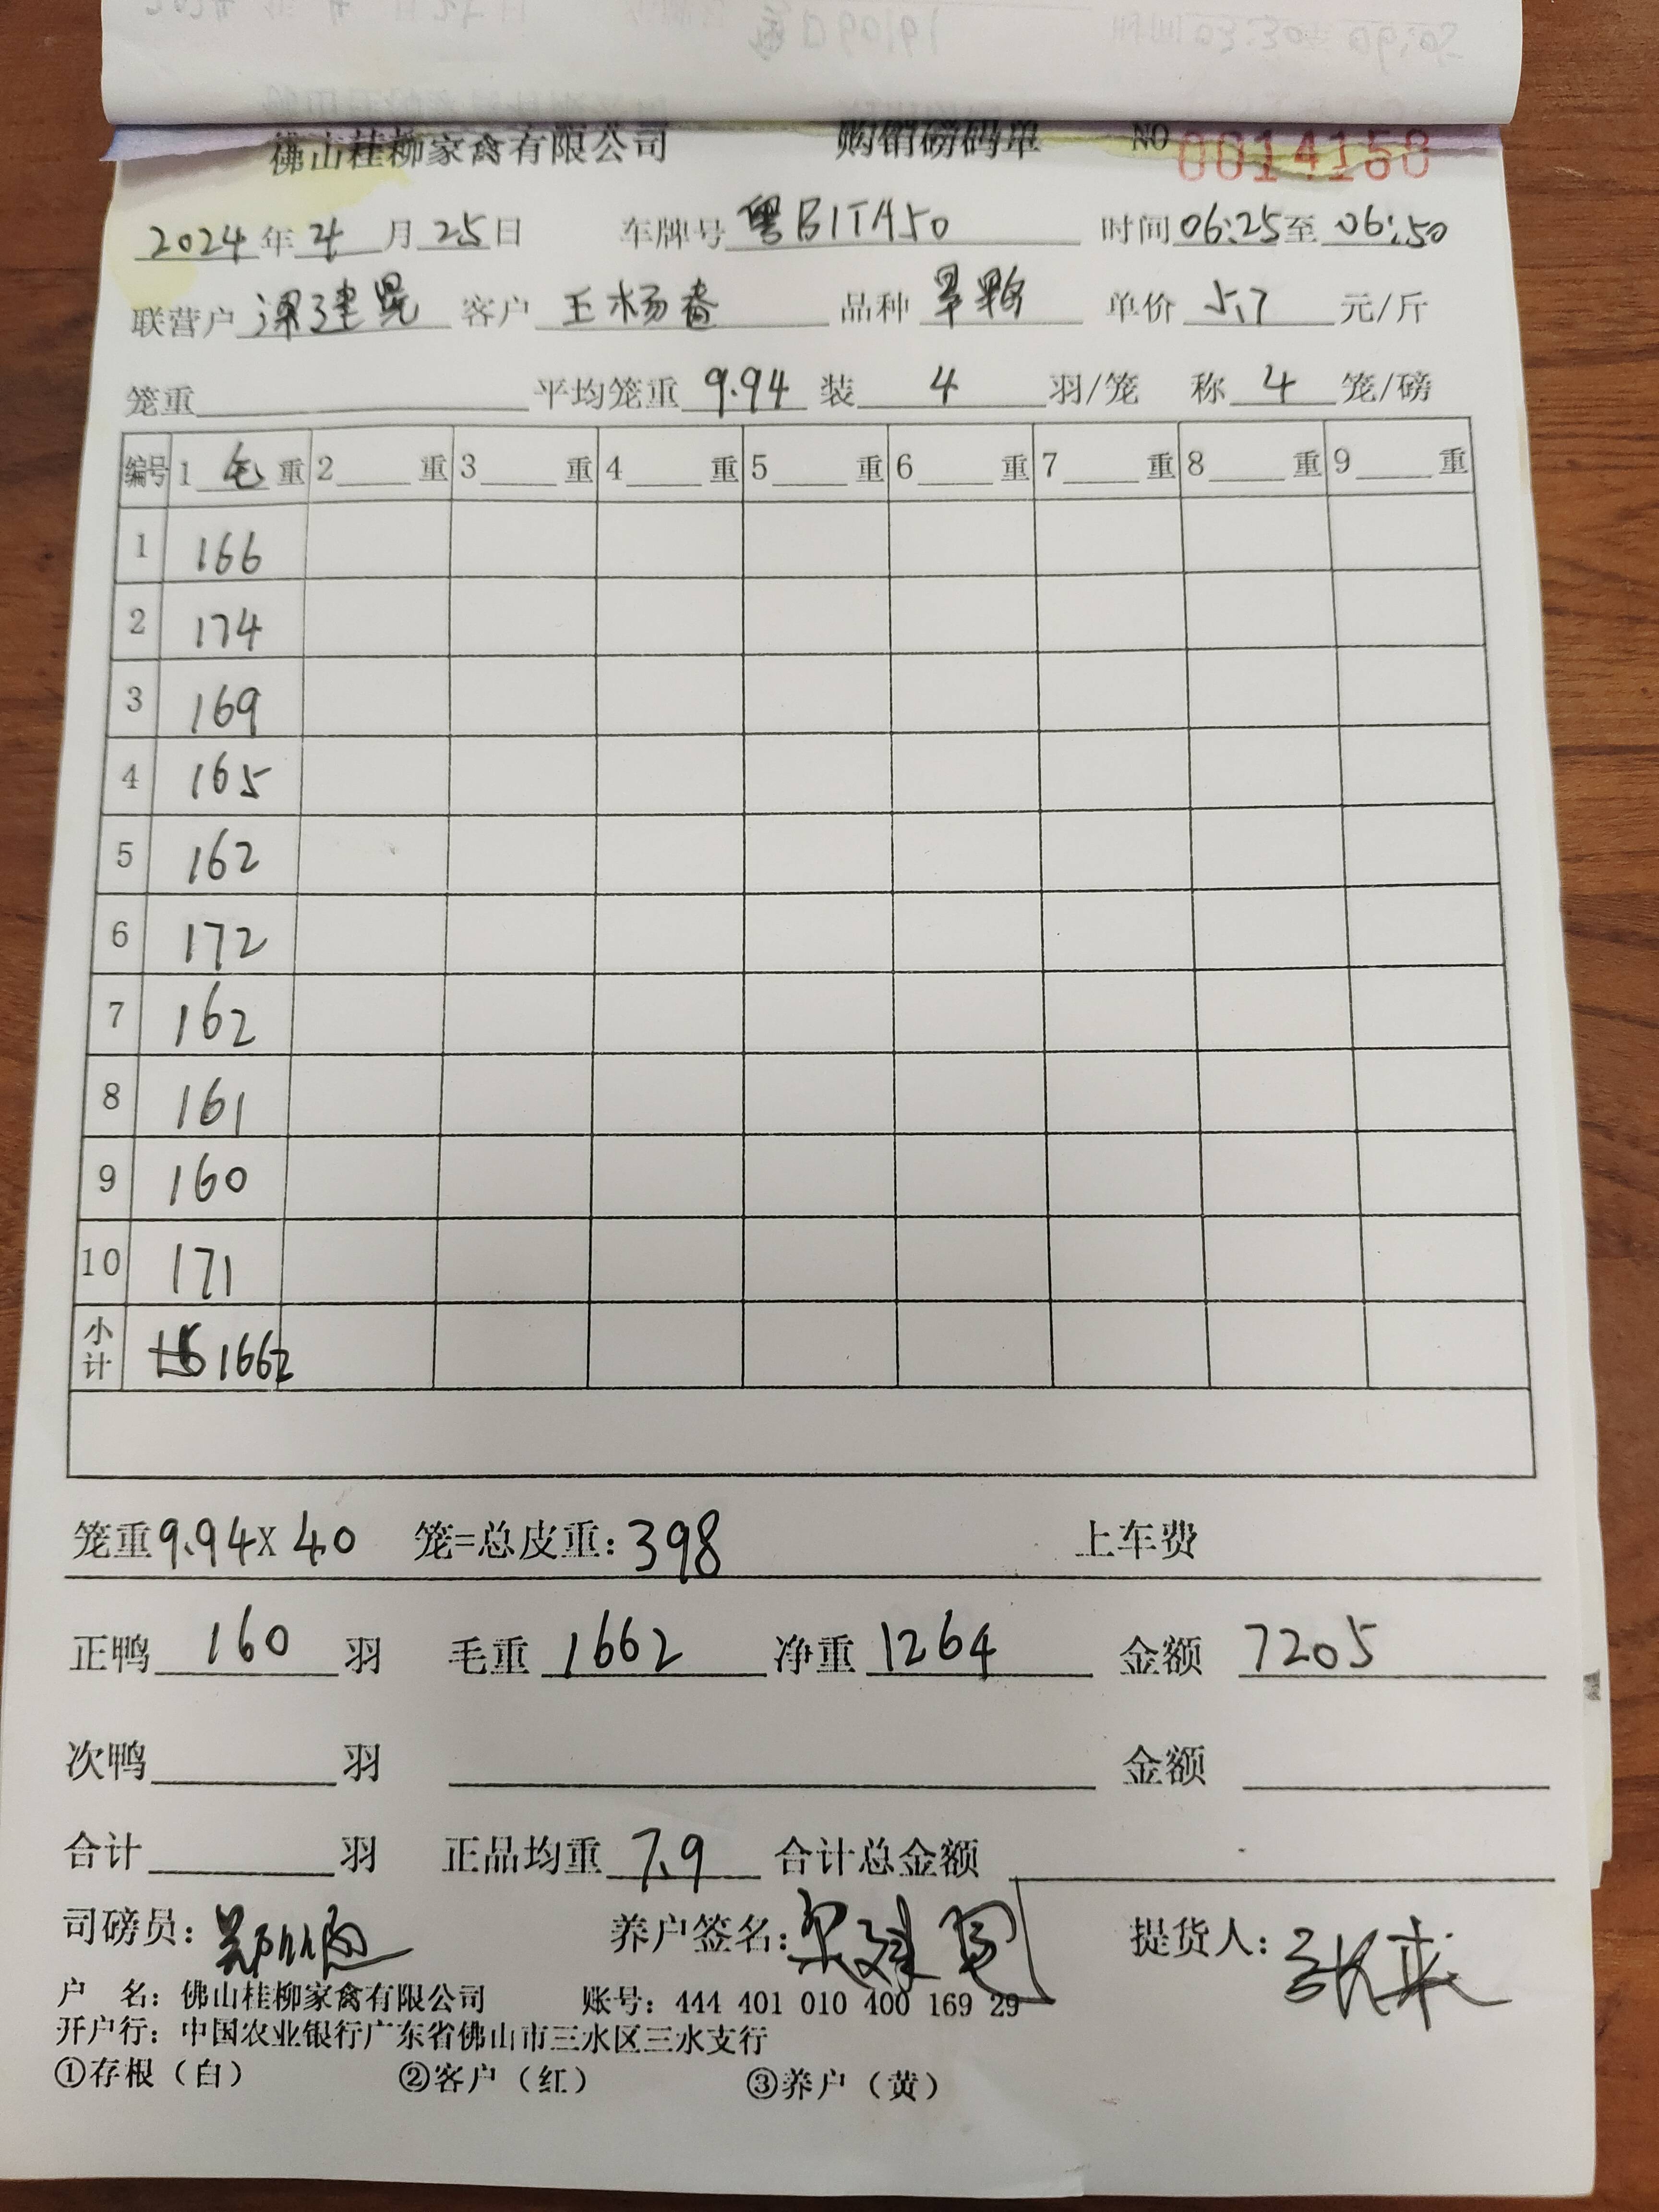 佛山桂柳家禽有限公司 购销磅码单 NO 0014158
2024年 4 月 25 日 车牌号 粤B1TA50 时间 06:25 至 06:50
联营户 梁建 客户 王杨春 品种 单价 5.7 元/斤
笼重 平均笼重 9.94 装 4 羽/笼 称 4 笼/磅
编号 1 毛 重 2 重 3 重 4 重 5 重 6 重 7 重 8 重 9 重
1 166
2 174
3 169
4 165
5 162
6 172
7 162
8 161
9 160
10 171
小计 1662
笼重 9.94 X 40 笼=总皮重: 398 上车费
正鸭 160 羽 毛重 1662 净重 1264 金额 7205
次鸭 羽 金额
合计 羽 正品均重 7.9 合计总金额
司磅员: 养户签名: 梁建 提货人: 张
户 名: 佛山桂柳家禽有限公司 账号: 444 401 010 400 169 29
开户行: 中国农业银行广东省佛山市三水区三水支行
①存根（白） ②客户（红） ③养户（黄）